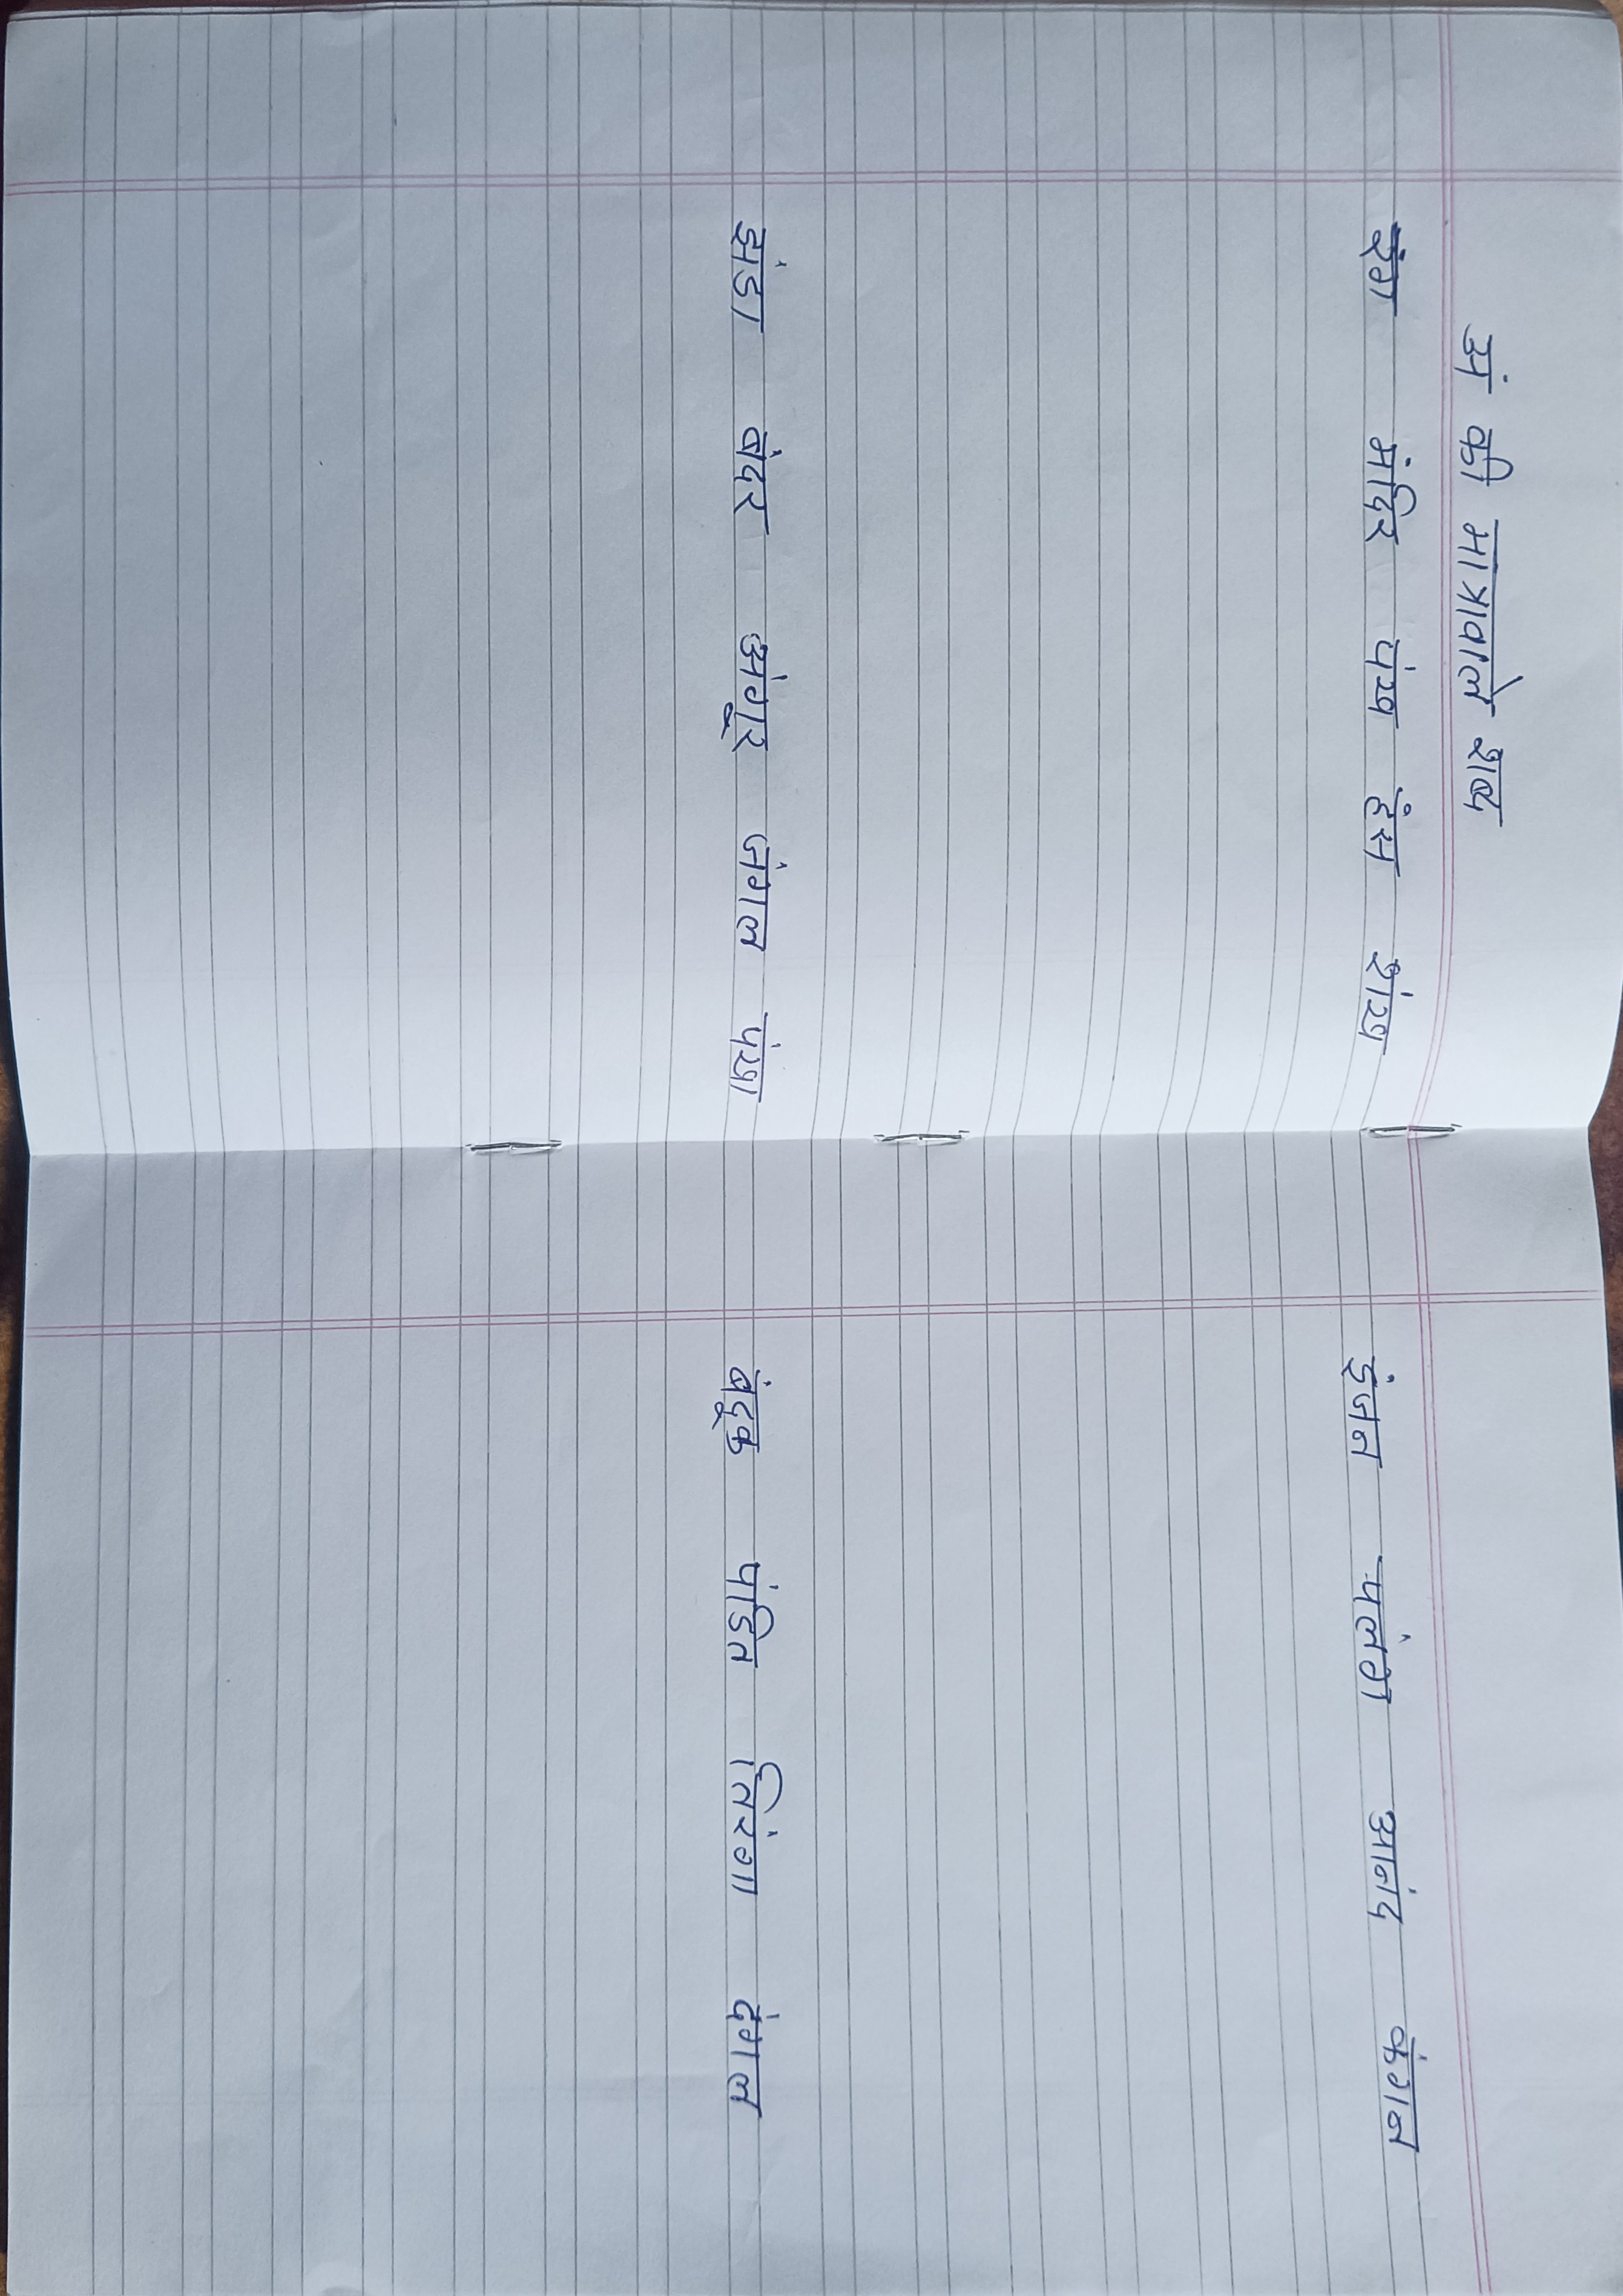 अं की मात्रावाले शब्द
रंग मंदिर पंख हंस शंख
झंडा बंदर अंगूर जंगल पंखा
इंजन पलंग आनंद कंगन
बंदूक पंडित तिरंगा दंगल